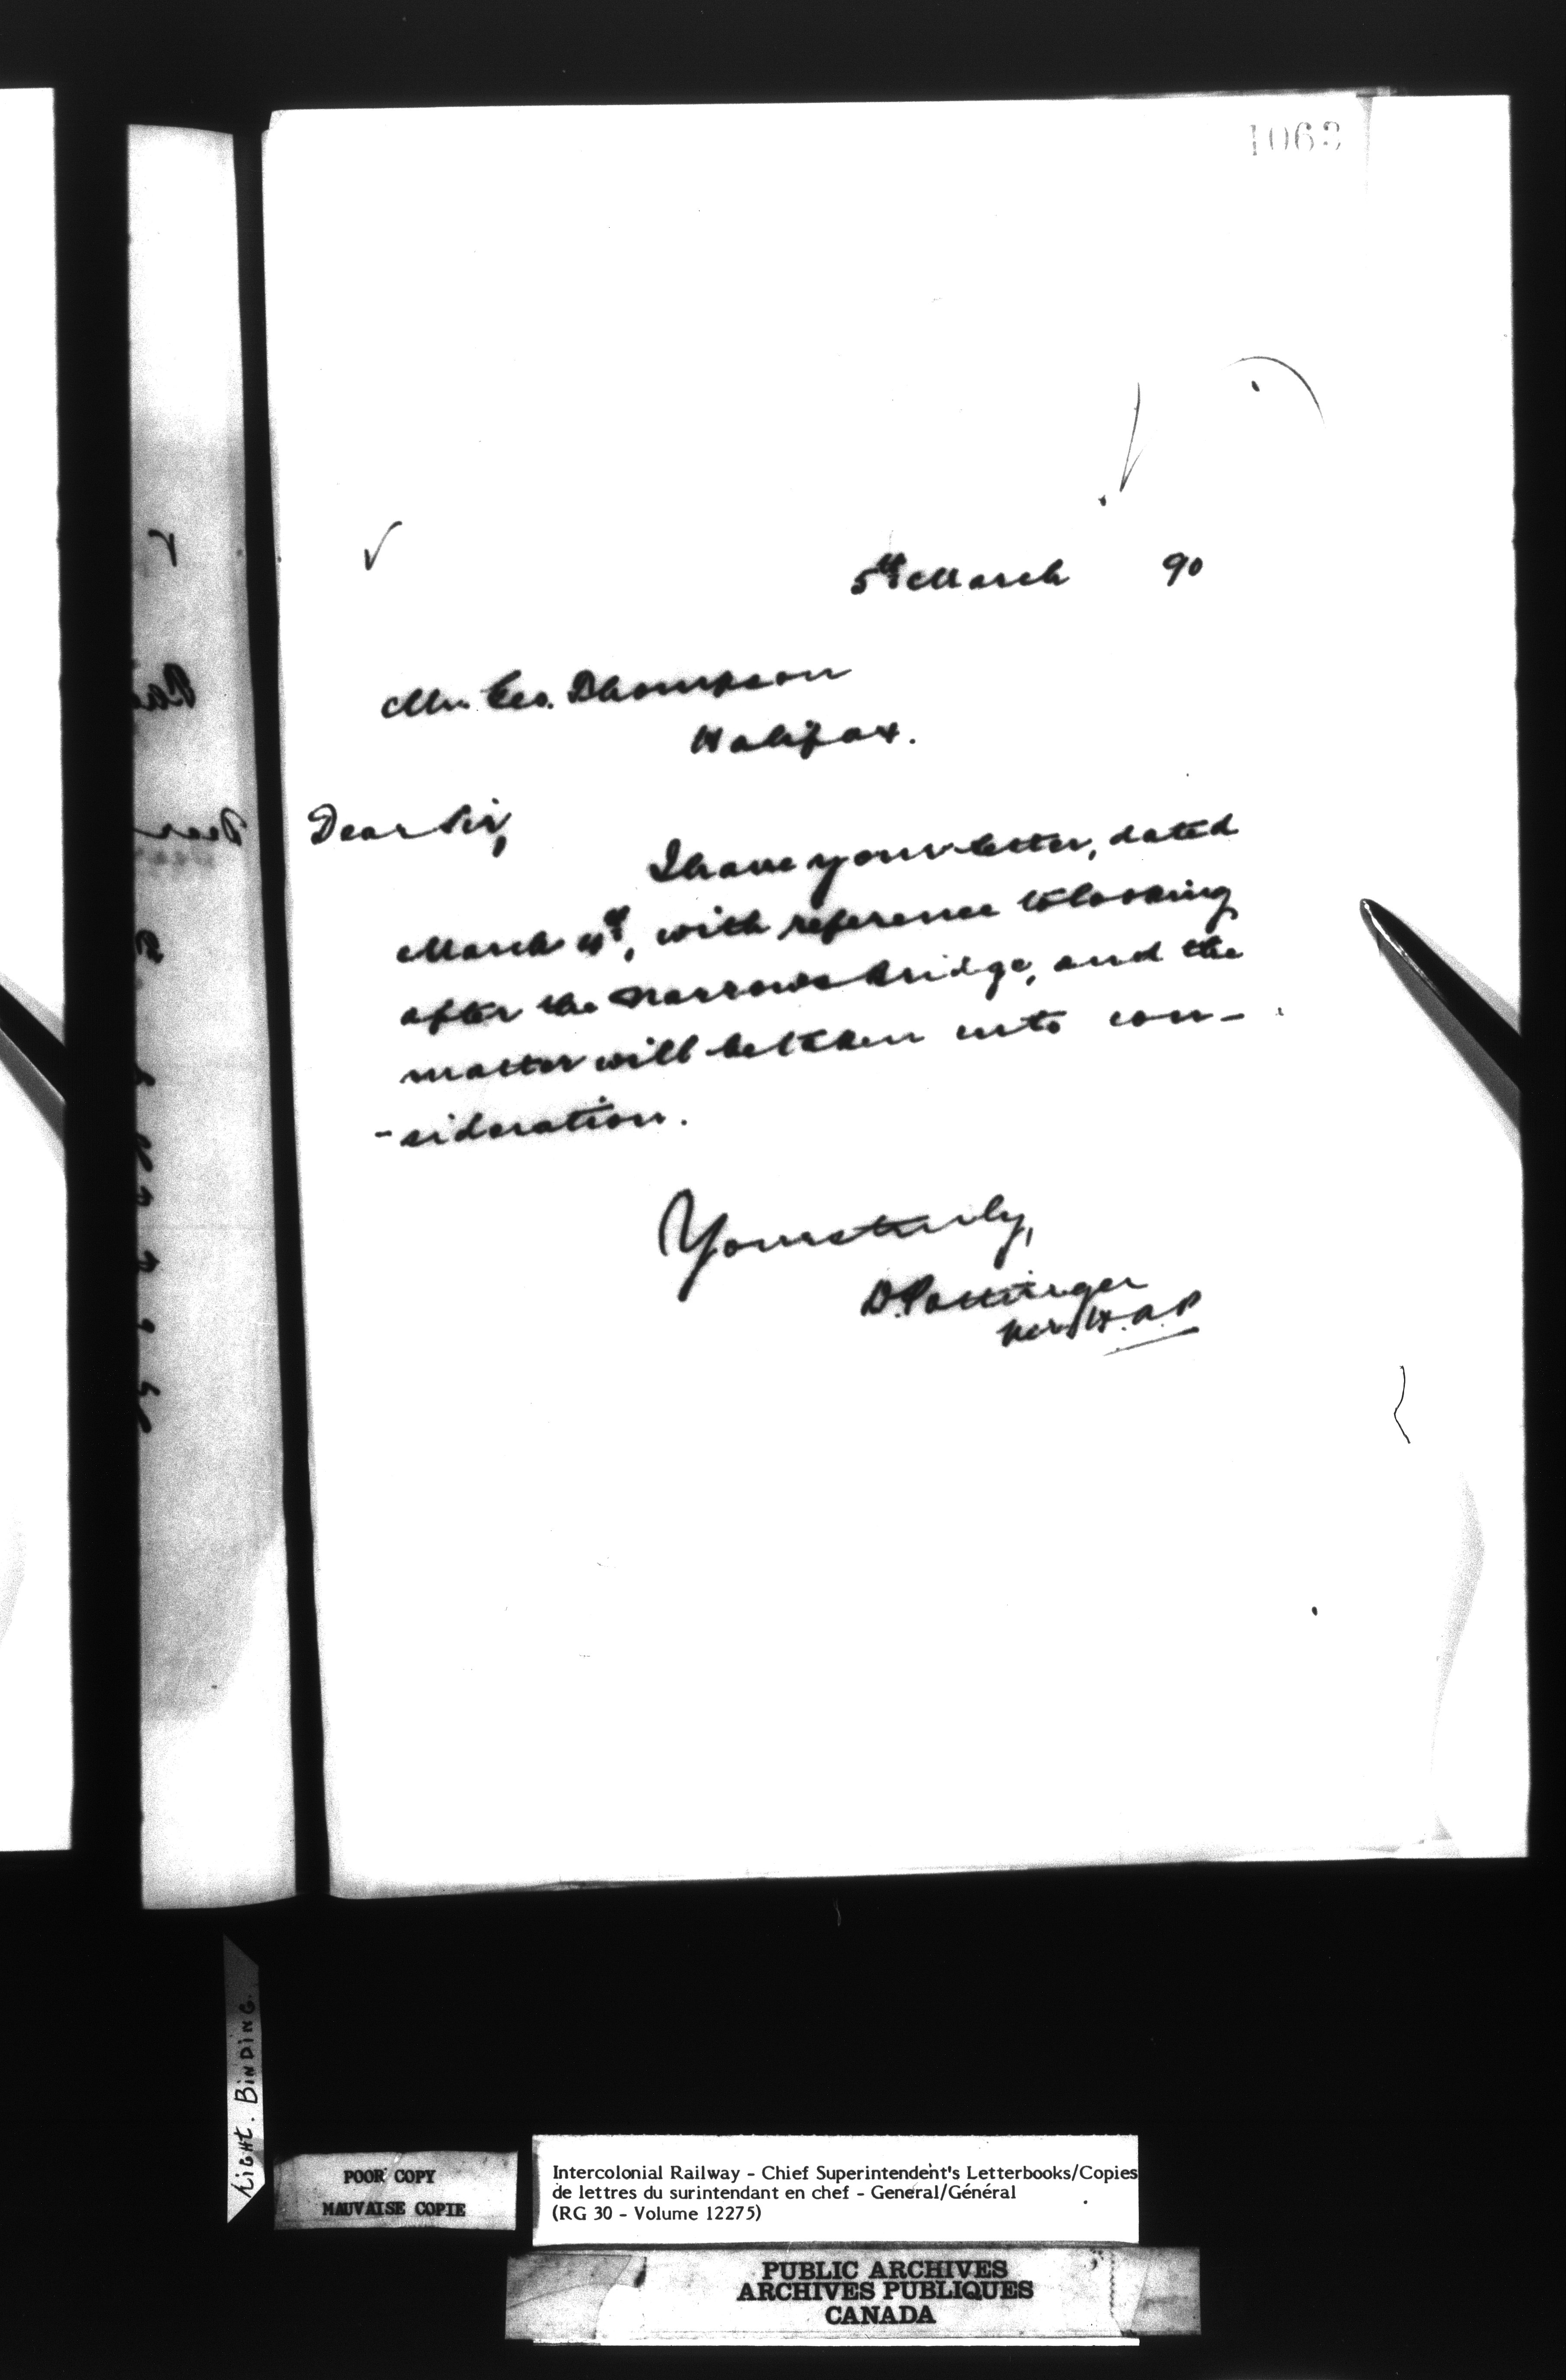 1063
5th March 90
Mr. Geo. Thompson
Halifax.
Dear Sir,
I have your letter, dated
March 4th, with reference to looking
after the Narrows Bridge, and the
matter will be taken into con-
-sideration.
Yours truly,
D. Pottinger
per H.A.P
TIGHT. BINDING.
POOR COPY
MAUVAISE COPIE
Intercolonial Railway - Chief Superintendent's Letterbooks/Copies
de lettres du surintendant en chef - General/Général
(RG 30 - Volume 12275)
PUBLIC ARCHIVES
ARCHIVES PUBLIQUES
CANADA